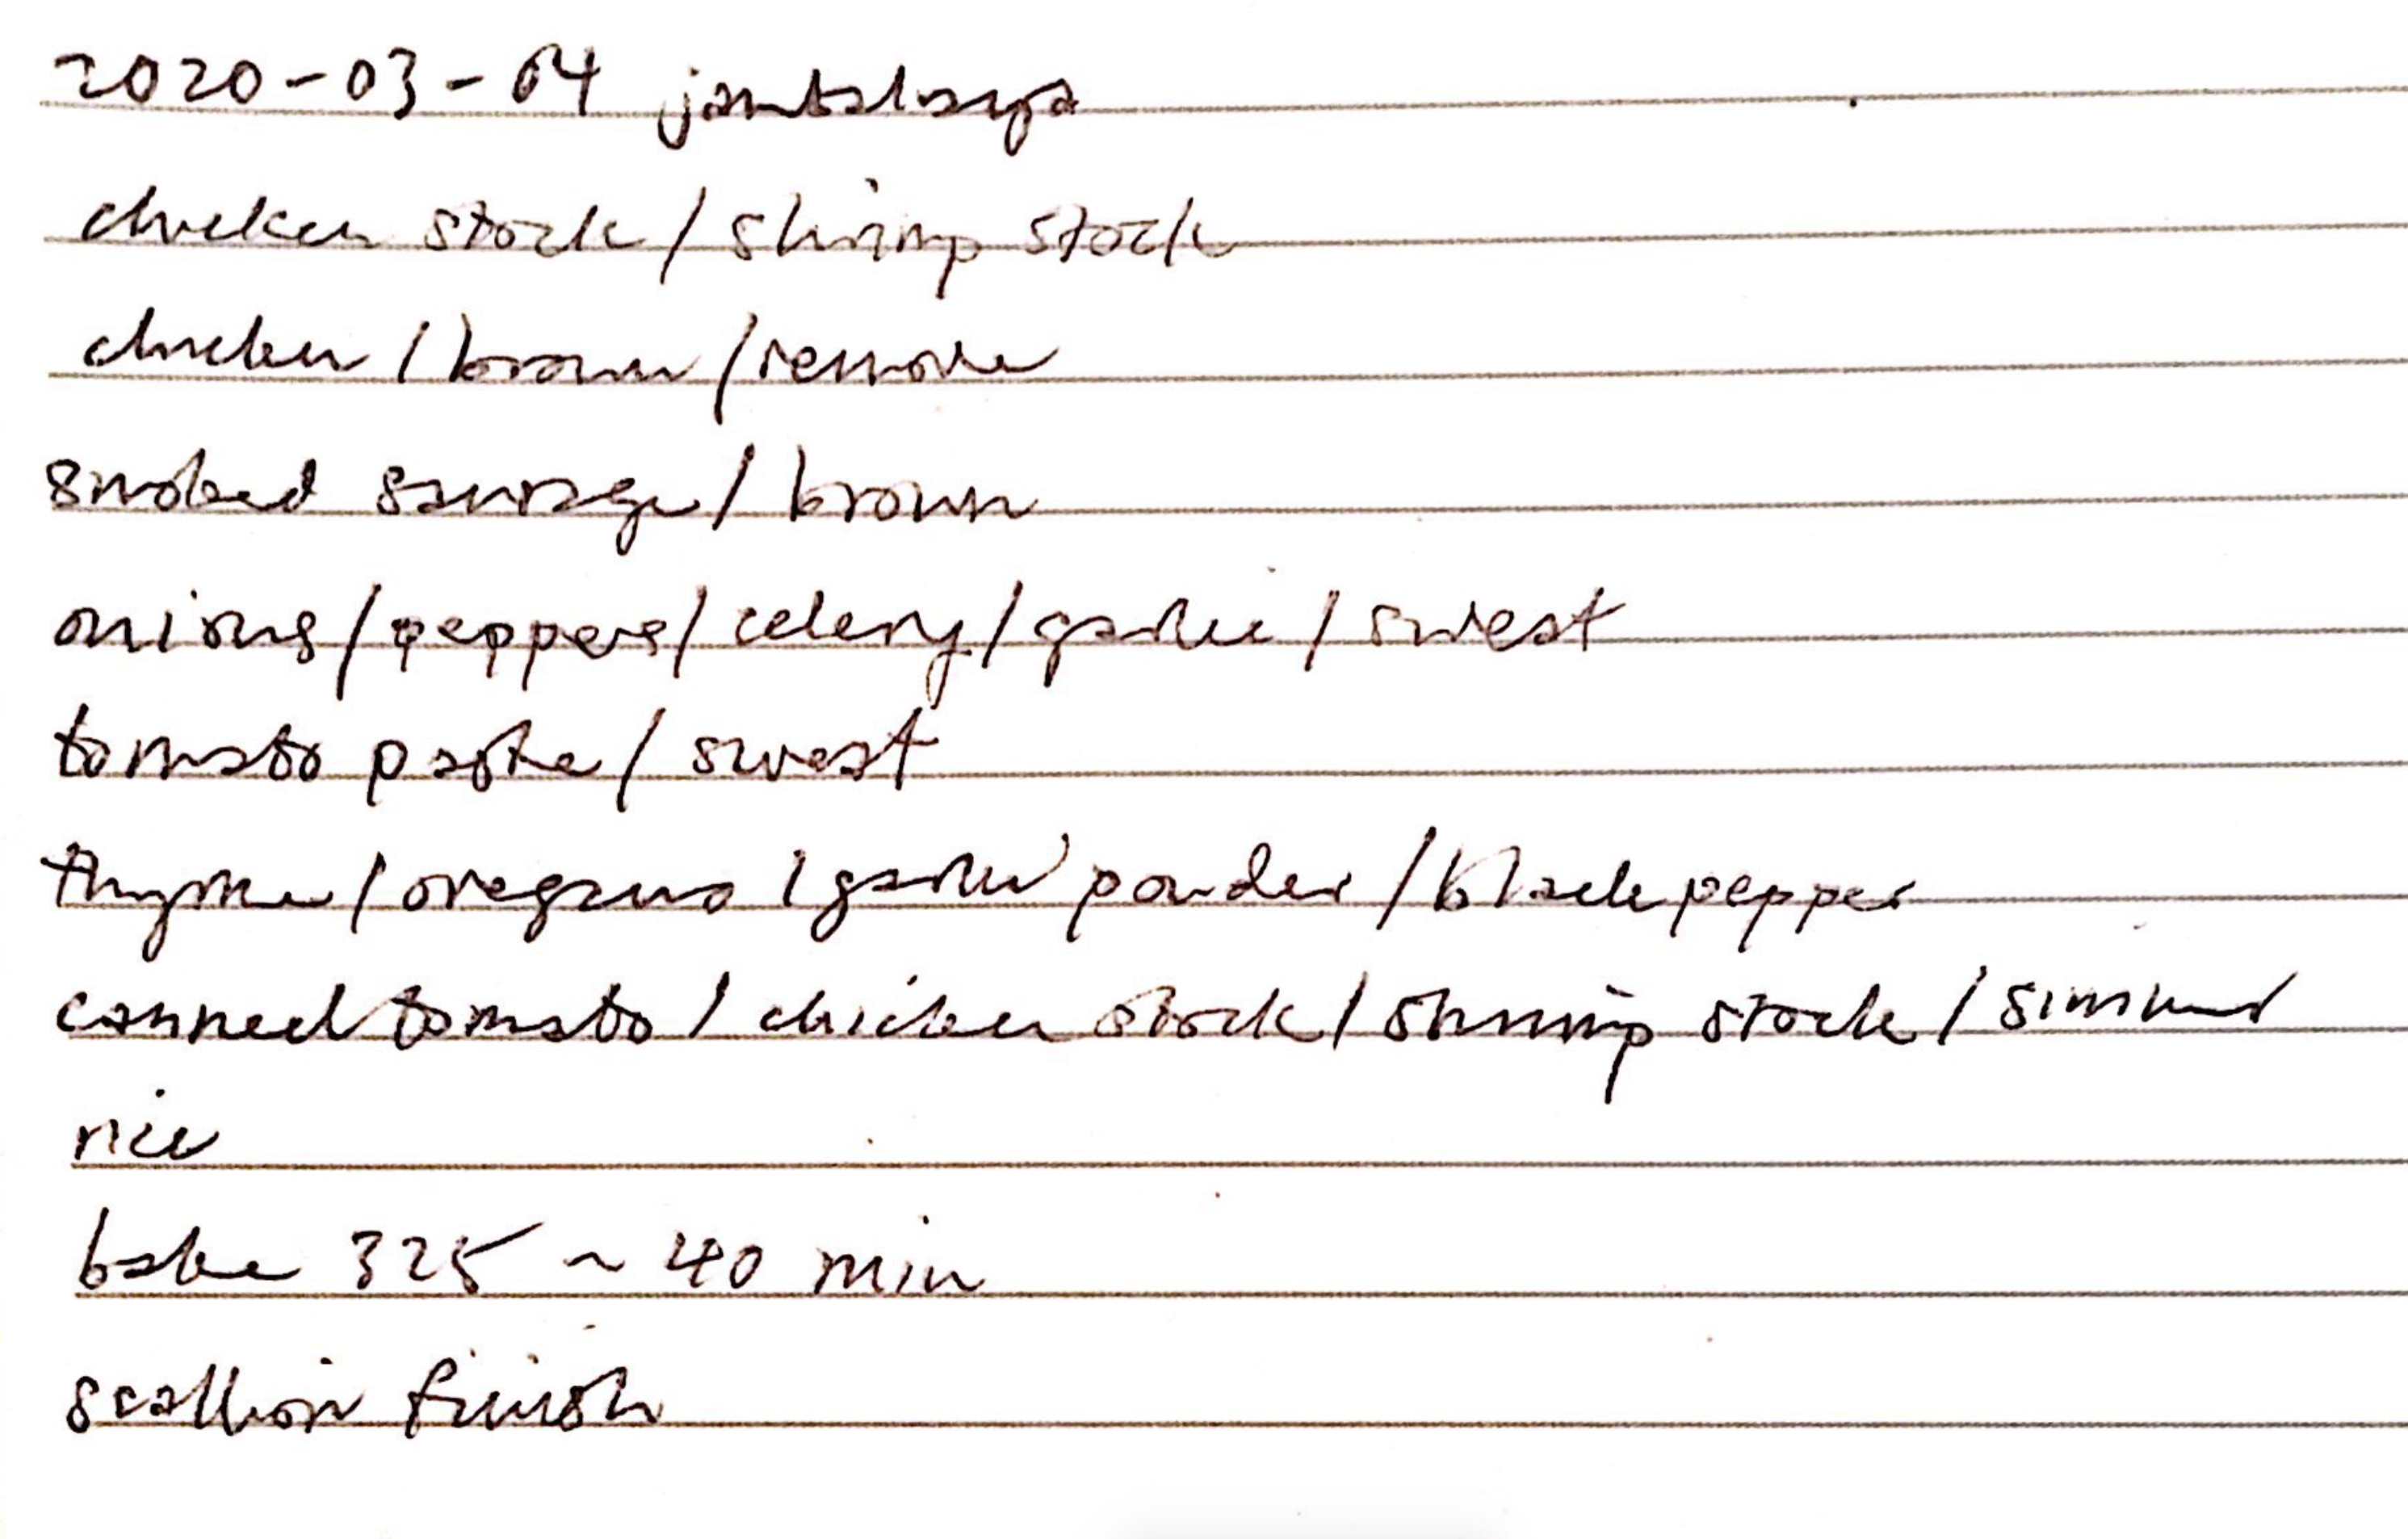 2020-03-04 jambalaya
chicken stock / shrimp stock
chicken / brown / remove
smoked sausage / brown
onions / peppers / celery / garlic / sweat
tomato paste / sweat
thyme / oregano / garlic powder / black pepper
canned tomato / chicken stock / shrimp stock / simmer
rice
bake 325 ~ 40 min
scallion finish